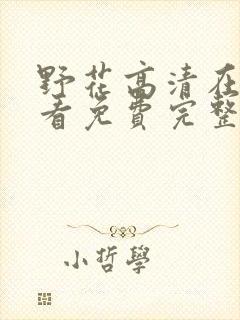 野花高清在
看免费完整
小哲學